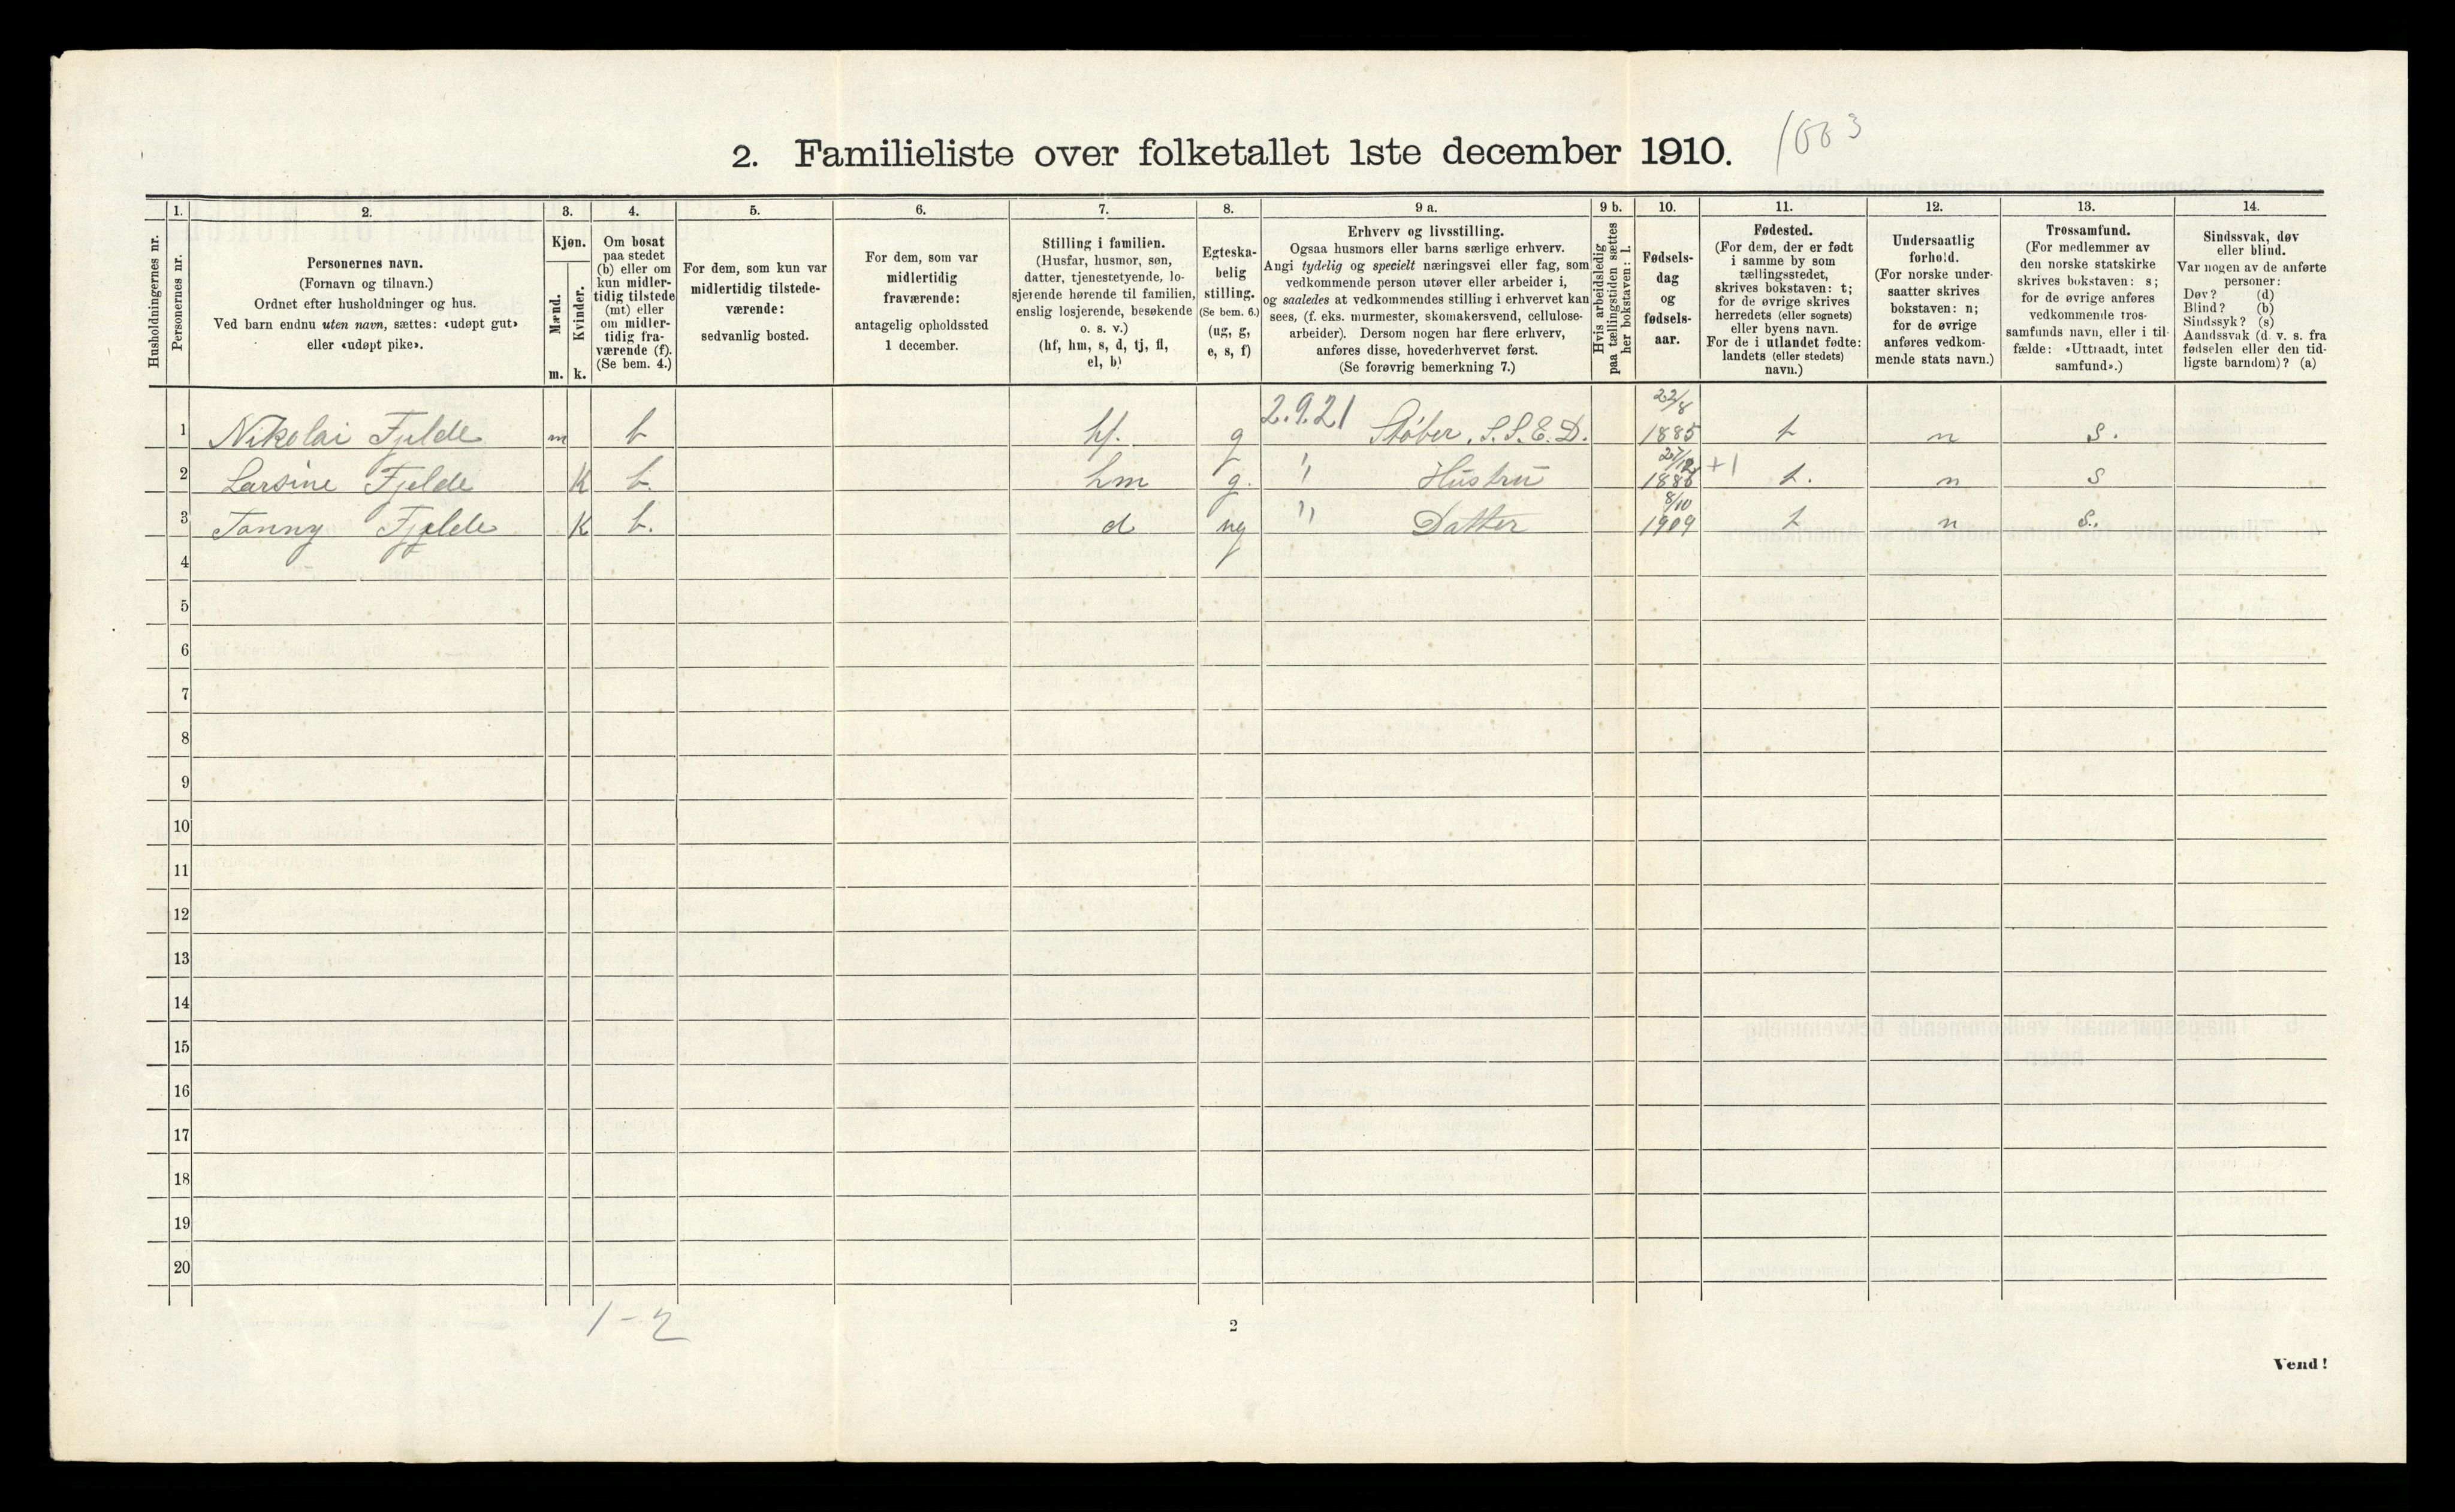 2. Familieliste over folketallet 1ste december 1910.
Husholdningernes nr.
1.
Personernes nr.
2.
Personernes navn.
(Fornavn og tilnavn.)
Ordnet efter husholdninger og hus.
Ved barn endnu uten navn, sættes: «udøpt gut»
eller «udøpt pike».
3.
Kjøn.
Mænd.
Kvinder.
m. k.
4.
Om bosat
paa stedet
(b) eller om
kun midler-
tidig tilstede
(mt) eller
om midler-
tidig fra-
værende (f).
(Se bem. 4.)
5.
For dem, som kun var
midlertidig tilstede-
værende:
sedvanlig bosted.
6.
For dem, som var
midlertidig
fraværende:
antagelig opholdssted
1 december.
7.
Stilling i familien.
(Husfar, husmor, søn,
datter, tjenestetyende, lo-
sjerende hørende til familien,
enslig losjerende, besøkende
o. s. v.)
(hf, hm, s, d, tj, fl,
el, b)
8.
Egteska-
belig
stilling.
(Se bem. 6.)
(ug, g,
e, s, f)
9 a.
Erhverv og livsstilling.
Ogsaa husmors eller barns særlige erhverv.
Angi tydelig og specielt næringsvei eller fag, som
vedkommende person utøver eller arbeider i,
og saaledes at vedkommendes stilling i erhvervet kan
sees, (f. eks. murmester, skomakersvend, cellulose-
arbeider). Dersom nogen har flere erhverv,
anføres disse, hovederhvervet først.
(Se forøvrig bemerkning 7.)
9 b.
Hvis arbeidsledig
paa tællingstiden sættes
her bokstaven: l.
10.
Fødsels-
dag
og
fødsels-
aar.
11.
Fødested.
(For dem, der er født
i samme by som
tællingsstedet,
skrives bokstaven: t;
for de øvrige skrives
herredets (eller sognets)
eller byens navn.
For de i utlandet fødte:
landets (eller stedets)
navn.)
12.
Undersaatlig
forhold.
(For norske under-
saatter skrives
bokstaven: n;
for de øvrige
anføres vedkom-
mende stats navn.)
13.
Trossamfund.
(For medlemmer av
den norske statskirke
skrives bokstaven: s;
for de øvrige anføres
vedkommende tros-
samfunds navn, eller i til-
fælde: «Uttraadt, intet
samfund».)
14.
Sindssvak, døv
eller blind.
Var nogen av de anførte
personer:
Døv? (d)
Blind? (b)
Sindssyk? (s)
Aandssvak (d. v. s. fra
fødselen eller den tid-
ligste barndom)? (a)
1 Nikolai Fjelde m b hf. g 2.9.21 Støber, S.S.E.D. 22/8 1885 t n s.
2 Larsine Fjelde K b. hm g. " Hustru t. n s
3 Fanny Fjelde K b. d ug " Datter 8/10 1909 t n s.
4
5
6
7
8
9
10
11
12
13
14
15
16
17
18
19
20
1-2
2
Vend!